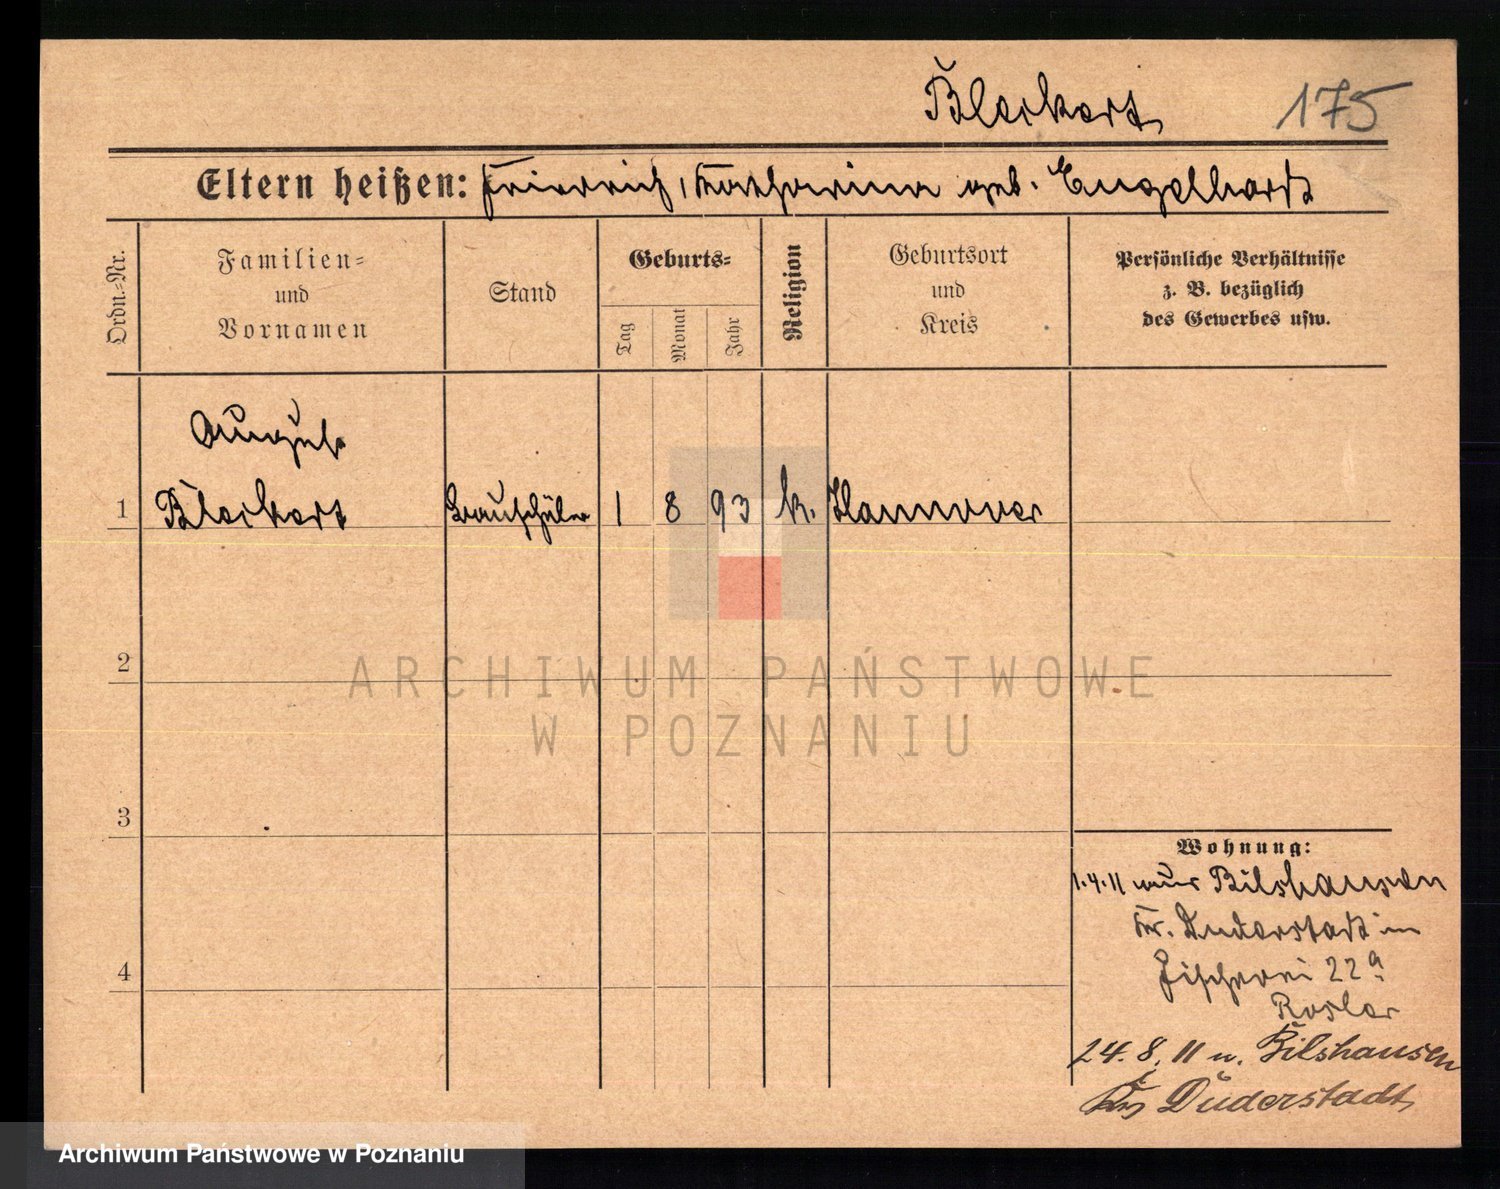 Bleckert
175
Eltern heißen: Friedrich, Katharina geb. Engelhardt
Ordn.-Nr.
Familien-
und
Vornamen
Stand
Geburts-
Tag
Monat
Jahr
Religion
Geburtsort
und
Kreis
Persönliche Verhältnisse
z. B. bezüglich
des Gewerbes usw.
August
1 Bleckert Bauschüler 1 8 93 k. Hannover
2
3
4
Wohnung:
1.4.11 aus Bilshausen
Kr. Duderstadt in
Fischerei 22a
24. 8. 11 n. Bilshausen
Krs Duderstadt
ARCHIWUM PAŃSTWOWE
W POZNANIU
Archiwum Państwowe w Poznaniu